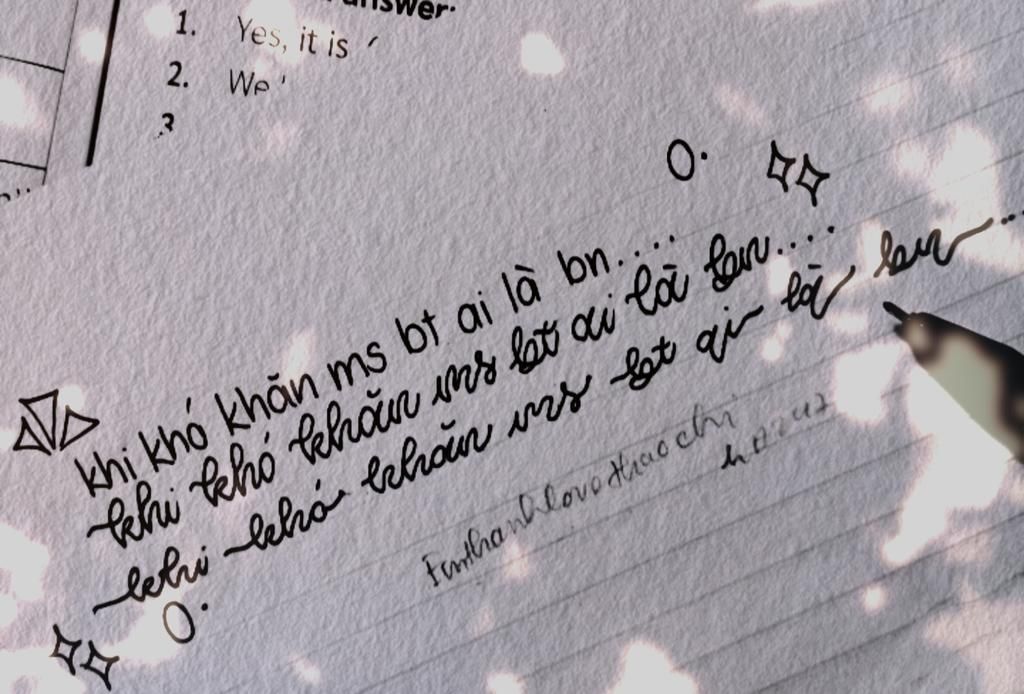 answer.
1. Yes, it is
2. We
3
khi khó khăn ms bt ai là bn....
khi khó khăn ms bt ai là bn....
khi khó khăn ms bt ai là bn...